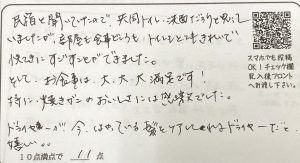 民宿と聞いていたので、共同トイレ・洗面だろうと思っていましたが、部屋も食事どころも、トイレもとてもきれいで
快てきにすごすことができました。
そして、お食事は、大、大、大満足です！
特に、焼き
のおいしさには感嘆でした。
ドライヤーが、今、はやっている髪をケアしてくれるドライヤーだと
嬉しい。。
10点満点で 11 点
スマホでも投稿
OK！チェック欄
記入後フロント
へお渡し下さい。